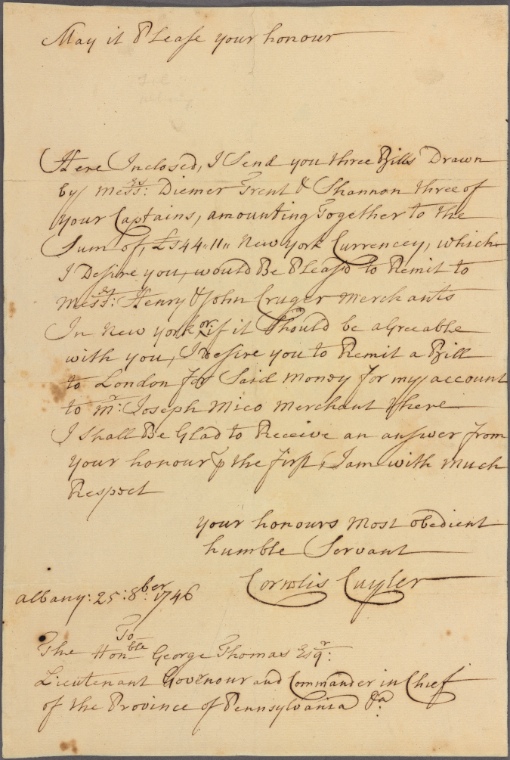 May it Please your honour
Here Inclosed, I Send you three Bills Drawn
by Messrs: Diemer Trent & Shannon three of
your Captains, amounting Together to the
Sum of, £544"11" New York Currencey, which
I Desire you, would Be Pleasd to Remit to
Messrs: Henry & John Cruger Merchants
In New york or if it Should be agreable
with you, I desire you to Remit a Bill
to London for Said Money for my account
to Mr: Joseph Mico Merchant there
I Shall Be Glad to Receive an answer from
your honour ⅌ the first, I am with much
Respect
your honours Most obedient
humble Servant
Cornelis Cuyler
albany: 25: 8ber 1746
To
The Honble George Thomas Esqr:
Lieutenant Governour and Commander in Chief
of the Province of Pennsylvania &a